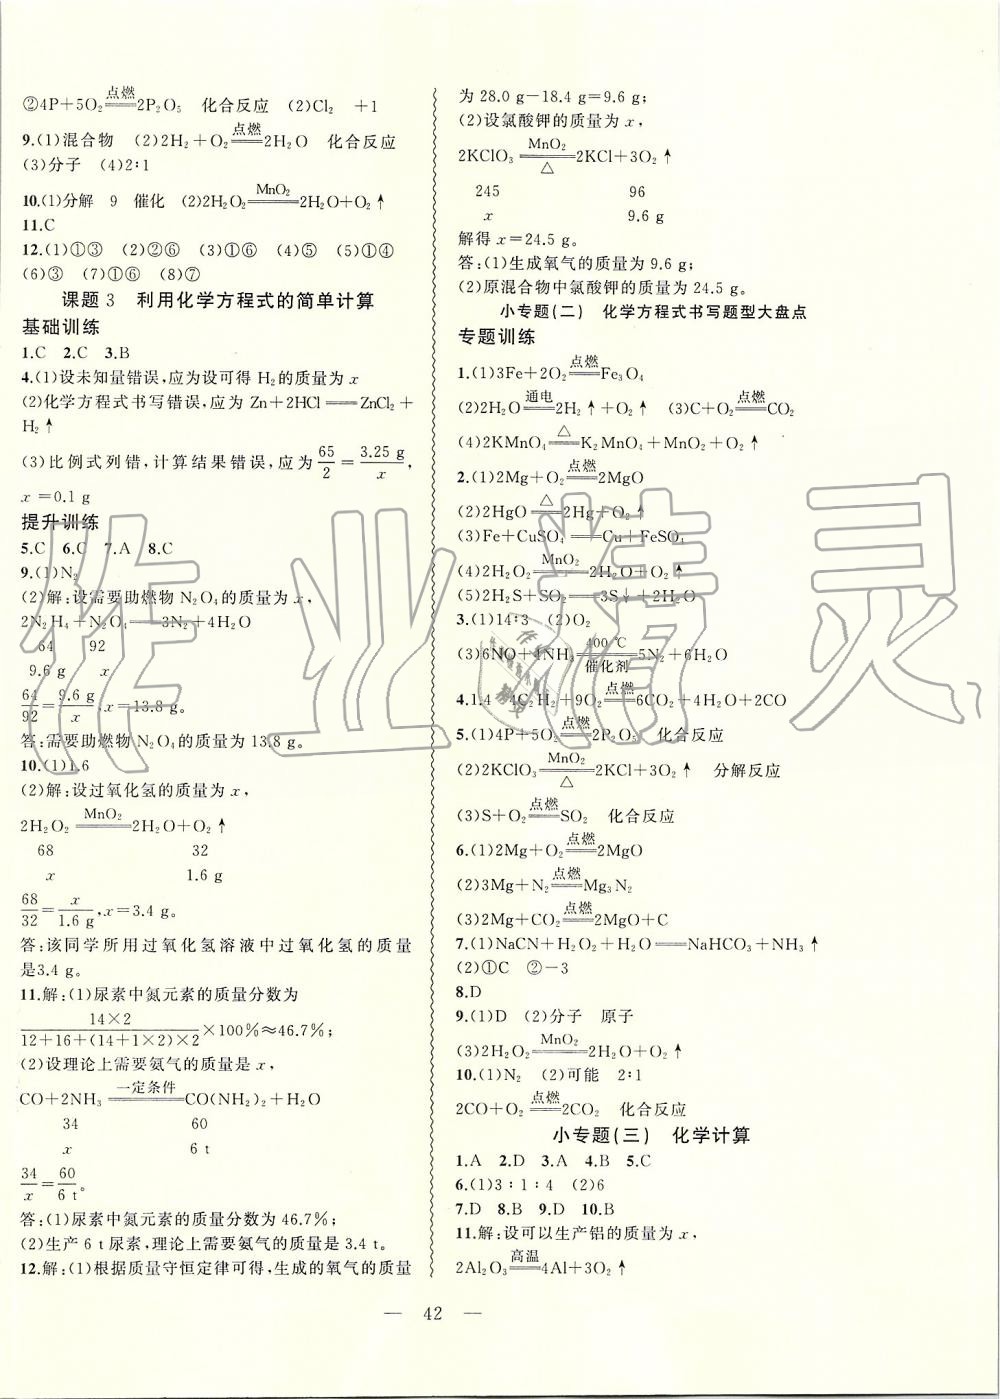 ②4P+5O₂ =点燃= 2P₂O₅ 化合反应 (2)Cl₂ +1
9.(1)混合物 (2)2H₂+O₂ =点燃= 2H₂O 化合反应
(3)分子 (4)2∶1
10.(1)分解 9 催化 (2)2H₂O₂ =MnO₂= 2H₂O+O₂↑
11.C
12.(1)①③ (2)②⑥ (3)①⑥ (4)⑤ (5)①④
(6)③ (7)①⑥ (8)⑦
课题3 利用化学方程式的简单计算
基础训练
1.C 2.C 3.B
4.(1)设未知量错误,应为设可得H₂的质量为x
(2)化学方程式书写错误,应为Zn+2HCl══ZnCl₂+
H₂↑
(3)比例式列错,计算结果错误,应为65/2=3.25 g/x,
x=0.1 g
提升训练
5.C 6.C 7.A 8.C
9.(1)N₂
(2)解:设需要助燃物N₂O₄的质量为x,
2N₂H₄+N₂O₄══3N₂+4H₂O
64 92
9.6 g x
64/92=9.6 g/x,x=13.8 g。
答:需要助燃物N₂O₄的质量为13.8 g。
10.(1)1.6
(2)解:设过氧化氢的质量为x,
2H₂O₂ =MnO₂= 2H₂O+O₂↑
68 32
x 1.6 g
68/32=x/1.6 g,x=3.4 g。
答:该同学所用过氧化氢溶液中过氧化氢的质量
是3.4 g。
11.解:(1)尿素中氮元素的质量分数为
14×2/12+16+(14+1×2)×2×100%≈46.7%;
(2)设理论上需要氨气的质量是x,
CO+2NH₃ =一定条件= CO(NH₂)₂+H₂O
34 60
x 6 t
34/x=60/6 t。
答:(1)尿素中氮元素的质量分数为46.7%;
(2)生产6 t尿素,理论上需要氨气的质量是3.4 t。
12.解:(1)根据质量守恒定律可得,生成的氧气的质量
为28.0 g-18.4 g=9.6 g;
(2)设氯酸钾的质量为x,
2KClO₃ =MnO₂/△= 2KCl+3O₂↑
245 96
x 9.6 g
解得x=24.5 g。
答:(1)生成氧气的质量为9.6 g;
(2)原混合物中氯酸钾的质量为24.5 g。
小专题(二) 化学方程式书写题型大盘点
专题训练
1.(1)3Fe+2O₂ =点燃= Fe₃O₄
(2)2H₂O =通电= 2H₂↑+O₂↑ (3)C+O₂ =点燃= CO₂
(4)2KMnO₄ =△= K₂MnO₄+MnO₂+O₂↑
2.(1)2Mg+O₂ =点燃= 2MgO
(2)2HgO =△= 2Hg+O₂↑
(3)Fe+CuSO₄══Cu+FeSO₄
(4)2H₂O₂ =MnO₂= 2H₂O+O₂↑
(5)2H₂S+SO₂══3S↓+2H₂O
3.(1)14∶3 (2)O₂
(3)6NO+4NH₃ =400 ℃/催化剂= 5N₂+6H₂O
4.1.4 4C₂H₂+9O₂ =点燃= 6CO₂+4H₂O+2CO
5.(1)4P+5O₂ =点燃= 2P₂O₅ 化合反应
(2)2KClO₃ =MnO₂/△= 2KCl+3O₂↑ 分解反应
(3)S+O₂ =点燃= SO₂ 化合反应
6.(1)2Mg+O₂ =点燃= 2MgO
(2)3Mg+N₂ =点燃= Mg₃N₂
(3)2Mg+CO₂ =点燃= 2MgO+C
7.(1)NaCN+H₂O₂+H₂O══NaHCO₃+NH₃↑
(2)①C ②-3
8.D
9.(1)D (2)分子 原子
(3)2H₂O₂ =MnO₂= 2H₂O+O₂↑
10.(1)N₂ (2)可能 2∶1
2CO+O₂ =点燃= 2CO₂ 化合反应
小专题(三) 化学计算
1.A 2.D 3.A 4.B 5.C
6.(1)3∶1∶4 (2)6
7.D 8.B 9.D 10.B
11.解:设可以生产铝的质量为x,
2Al₂O₃ =高温= 4Al+3O₂↑
— 42 —
作业精灵